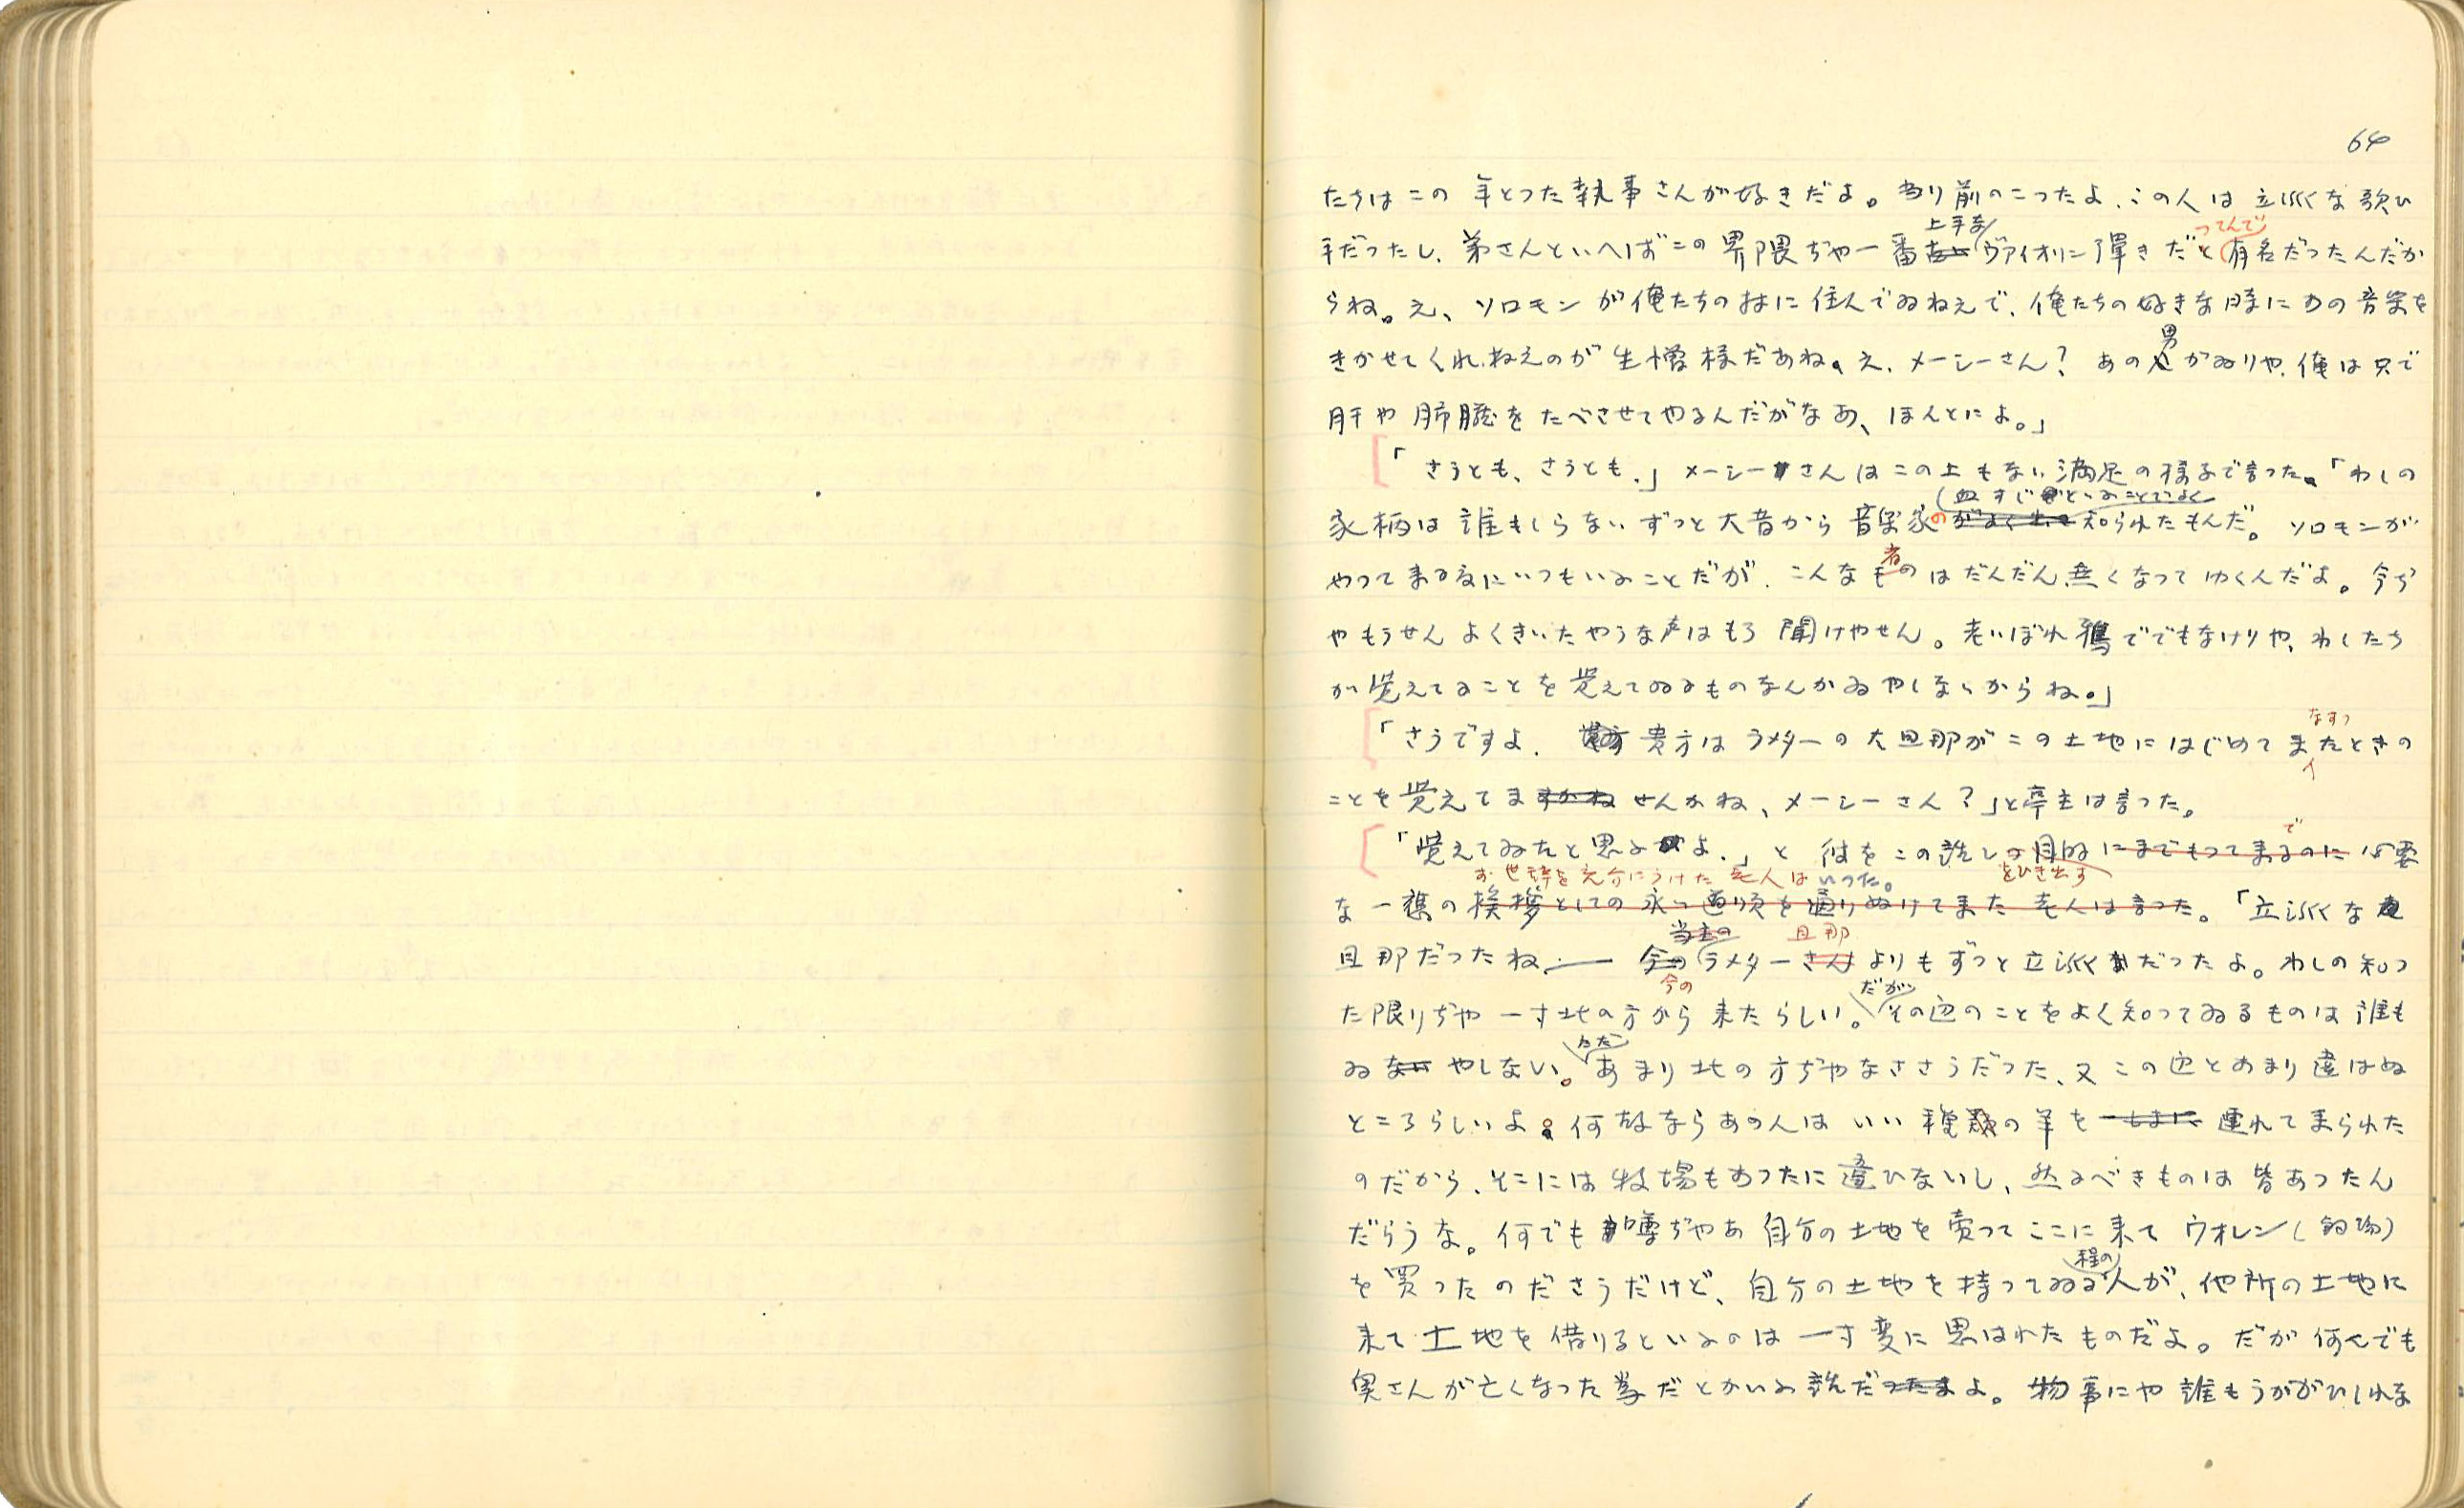 64
たちはこの年とつた執事さんが好きだよ。当り前のこつたよ、この人は立派な歌ひ
上手な つてんで
手だつたし、弟さんといへばこの界隈ぢや一番ヴァイオリン弾きだと有名だつたんだか
らね。え、ソロモンが俺たちの村に住んでゐねえで、俺たちの好きな時にあの音楽を
男
きかせてくれねえのが生憎様だあね、え、メーシーさん? あの がゐりや、俺は只で
肝や肺臓をたべさせてやるんだがなあ、ほんとによ。」
「さうとも、さうとも、」メーシーさんはこの上もない満足の様子で言つた、「わしの
血すじといふことでよく
家柄は誰もしらないずつと大昔から音楽家の がよく出て 知られたもんだ。ソロモンが
者
やつてまる度にいつもいふことだが、こんなものはだんだん無くなつてゆくんだよ。今ぢ
やもうせんよくきいたやうな声はもう聞けやせん。老いぼれ鴉ででもなけりや、わしたち
が覚えてることを覚えてゐるものなんかゐやしないからね。」
なすつ
「さうですよ、貴方はラメターの大旦那がこの土地にはじめてまたときの
ことを覚えてますかね せんかね、メーシーさん?」と亭主は言つた。
で
「覚えてゐたと思ふよ、」と彼をこの話しの目的にまでもつてまるのに必要
お世辞を充分にうけた老人はいつた。 をひき出す
な一套の挨拶としての永い道順を通りぬけてまた老人は言つた。「立派な
当主の 旦那
旦那だつたね、— 今のラメターさんよりもずつと立派だつたよ。わしの知つ
今の だが
た限りぢや一寸北の方から来たらしい。その辺のことをよく知つてゐるものは誰も
ただ
ゐない やしない。あまり北の方ぢやなささうだつた、又この辺とあまり違はぬ
ところらしいよ。何故ならあの人はいい種類の羊を 連れてまられた
のだから、そこには牧場もあつたに違ひないし、然るべきものは皆あつたん
だらうな。何でも噂ぢやあ自分の土地を売つてここに来てウオレン(
程の
を買つたのださうだけど、自分の土地を持つてゐる人が、他所の土地に
来て土地を借りるといふのは一寸変に思はれたものだよ。だが何んでも
奥さんが亡くなつた為だとかいふ話だつたよ。物事にや誰もうかがひしれな